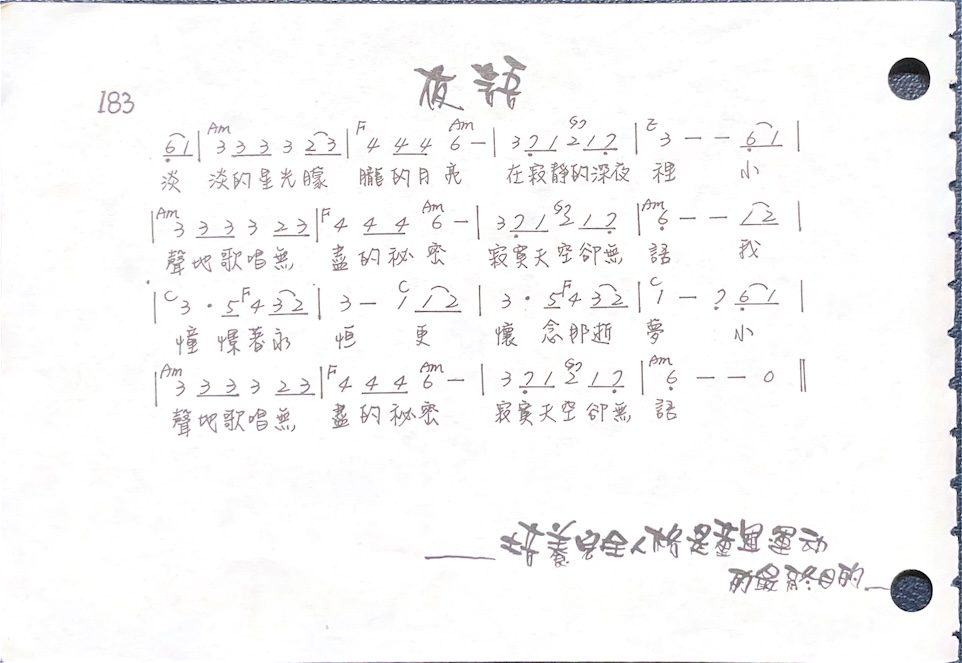 夜語
183
6 1 | Am 3 3 3 3 2 3 | F 4 4 4 Am 6 – | 3 7 1 G7 2 1 7 | E 3 – – 6 1 |
淡 淡的星光朦 朧的月亮 在寂靜的深夜 裡 小
| Am 3 3 3 3 2 3 | F 4 4 4 Am 6 – | 3 7 1 G7 2 1 7 | Am 6 – – 1 2 |
聲地歌唱無 盡的秘密 寂寞天空卻無 語 我
| C 3 · 5 F 4 3 2 | 3 – C 1 1 2 | 3 · 5 F 4 3 2 | C 1 – 7 6 1 |
憧 憬著永 恒 更 懷 念那逝 夢 小
| Am 3 3 3 3 2 3 | F 4 4 4 Am 6 – | 3 7 1 G7 2 1 7 | Am 6 – – 0 ‖
聲地歌唱無 盡的秘密 寂寞天空卻無 語
——培養完全人格是童軍運动
的最終目的—